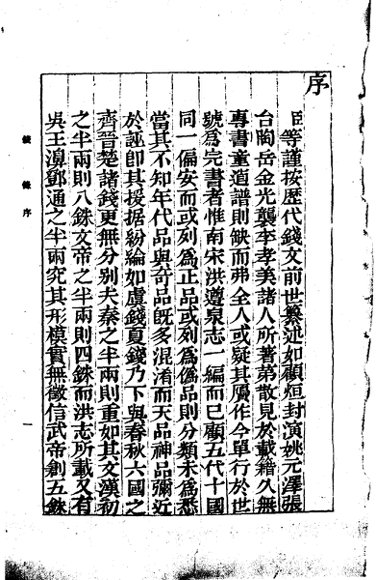 序
臣等謹按歷代錢文前世纂述如顧烜封演姚元澤張
台陶岳金光襲李孝美諸人所著第散見於載籍久無
專書董逌譜則缺而弗全人或疑其贋作今單行於世
號為完書者惟南宋洪遵泉志一編而已顧五代十國
同一偏安而或列為正品或列為僞品則分類未為悉
當其不知年代品與奇品旣多混淆而天品神品彌近
於誣卽其援据紛綸如虞錢夏錢乃下與春秋六國之
齊晉楚諸錢更無分別夫秦之半兩則重如其文漢初
之半兩則八銖文帝之半兩則四銖而洪志所載又有
吳王濞鄧通之半兩究其形模實無徵信武帝創五銖
錢錄序
一